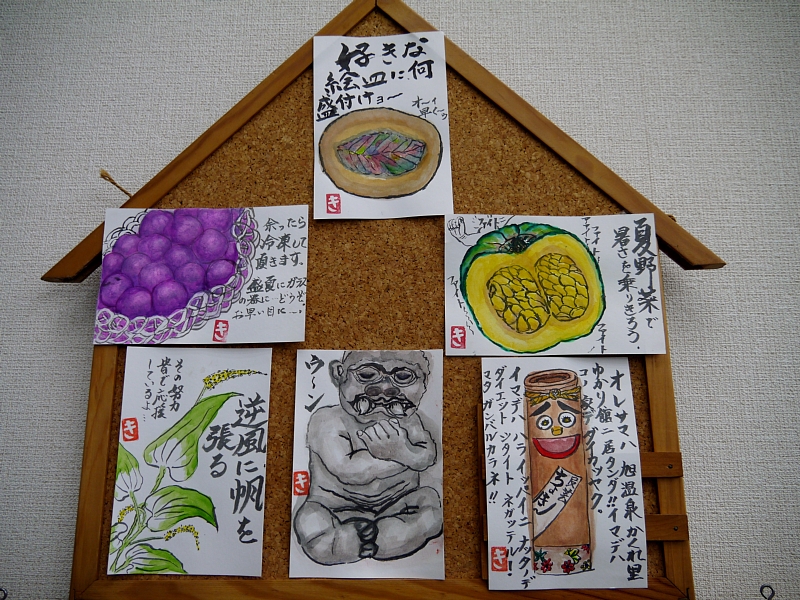 好きな
絵皿に何
盛付けョ〜
オーイ
早くーゥ
キ
余ったら
冷凍して
頂きます。
盛夏にガラス
の器に…どうぞ。
お早い目に…。
キ
夏野菜で
暑さを乗りきろう。
ファイトー
ファイトー
ファイト
キ
その努力
皆で応援
しているよ…
逆風に帆を
張る
キ
ウ〜ン
キ
オレサマハ 旭温泉 かくれ里
ゆかり館ニ居タンダ!!イマデハ
イマデハ ハライッパイニ ナッタノデ
ダイエット シタイト ネガッテル!
マタ ガンバルカラネ!!
キ